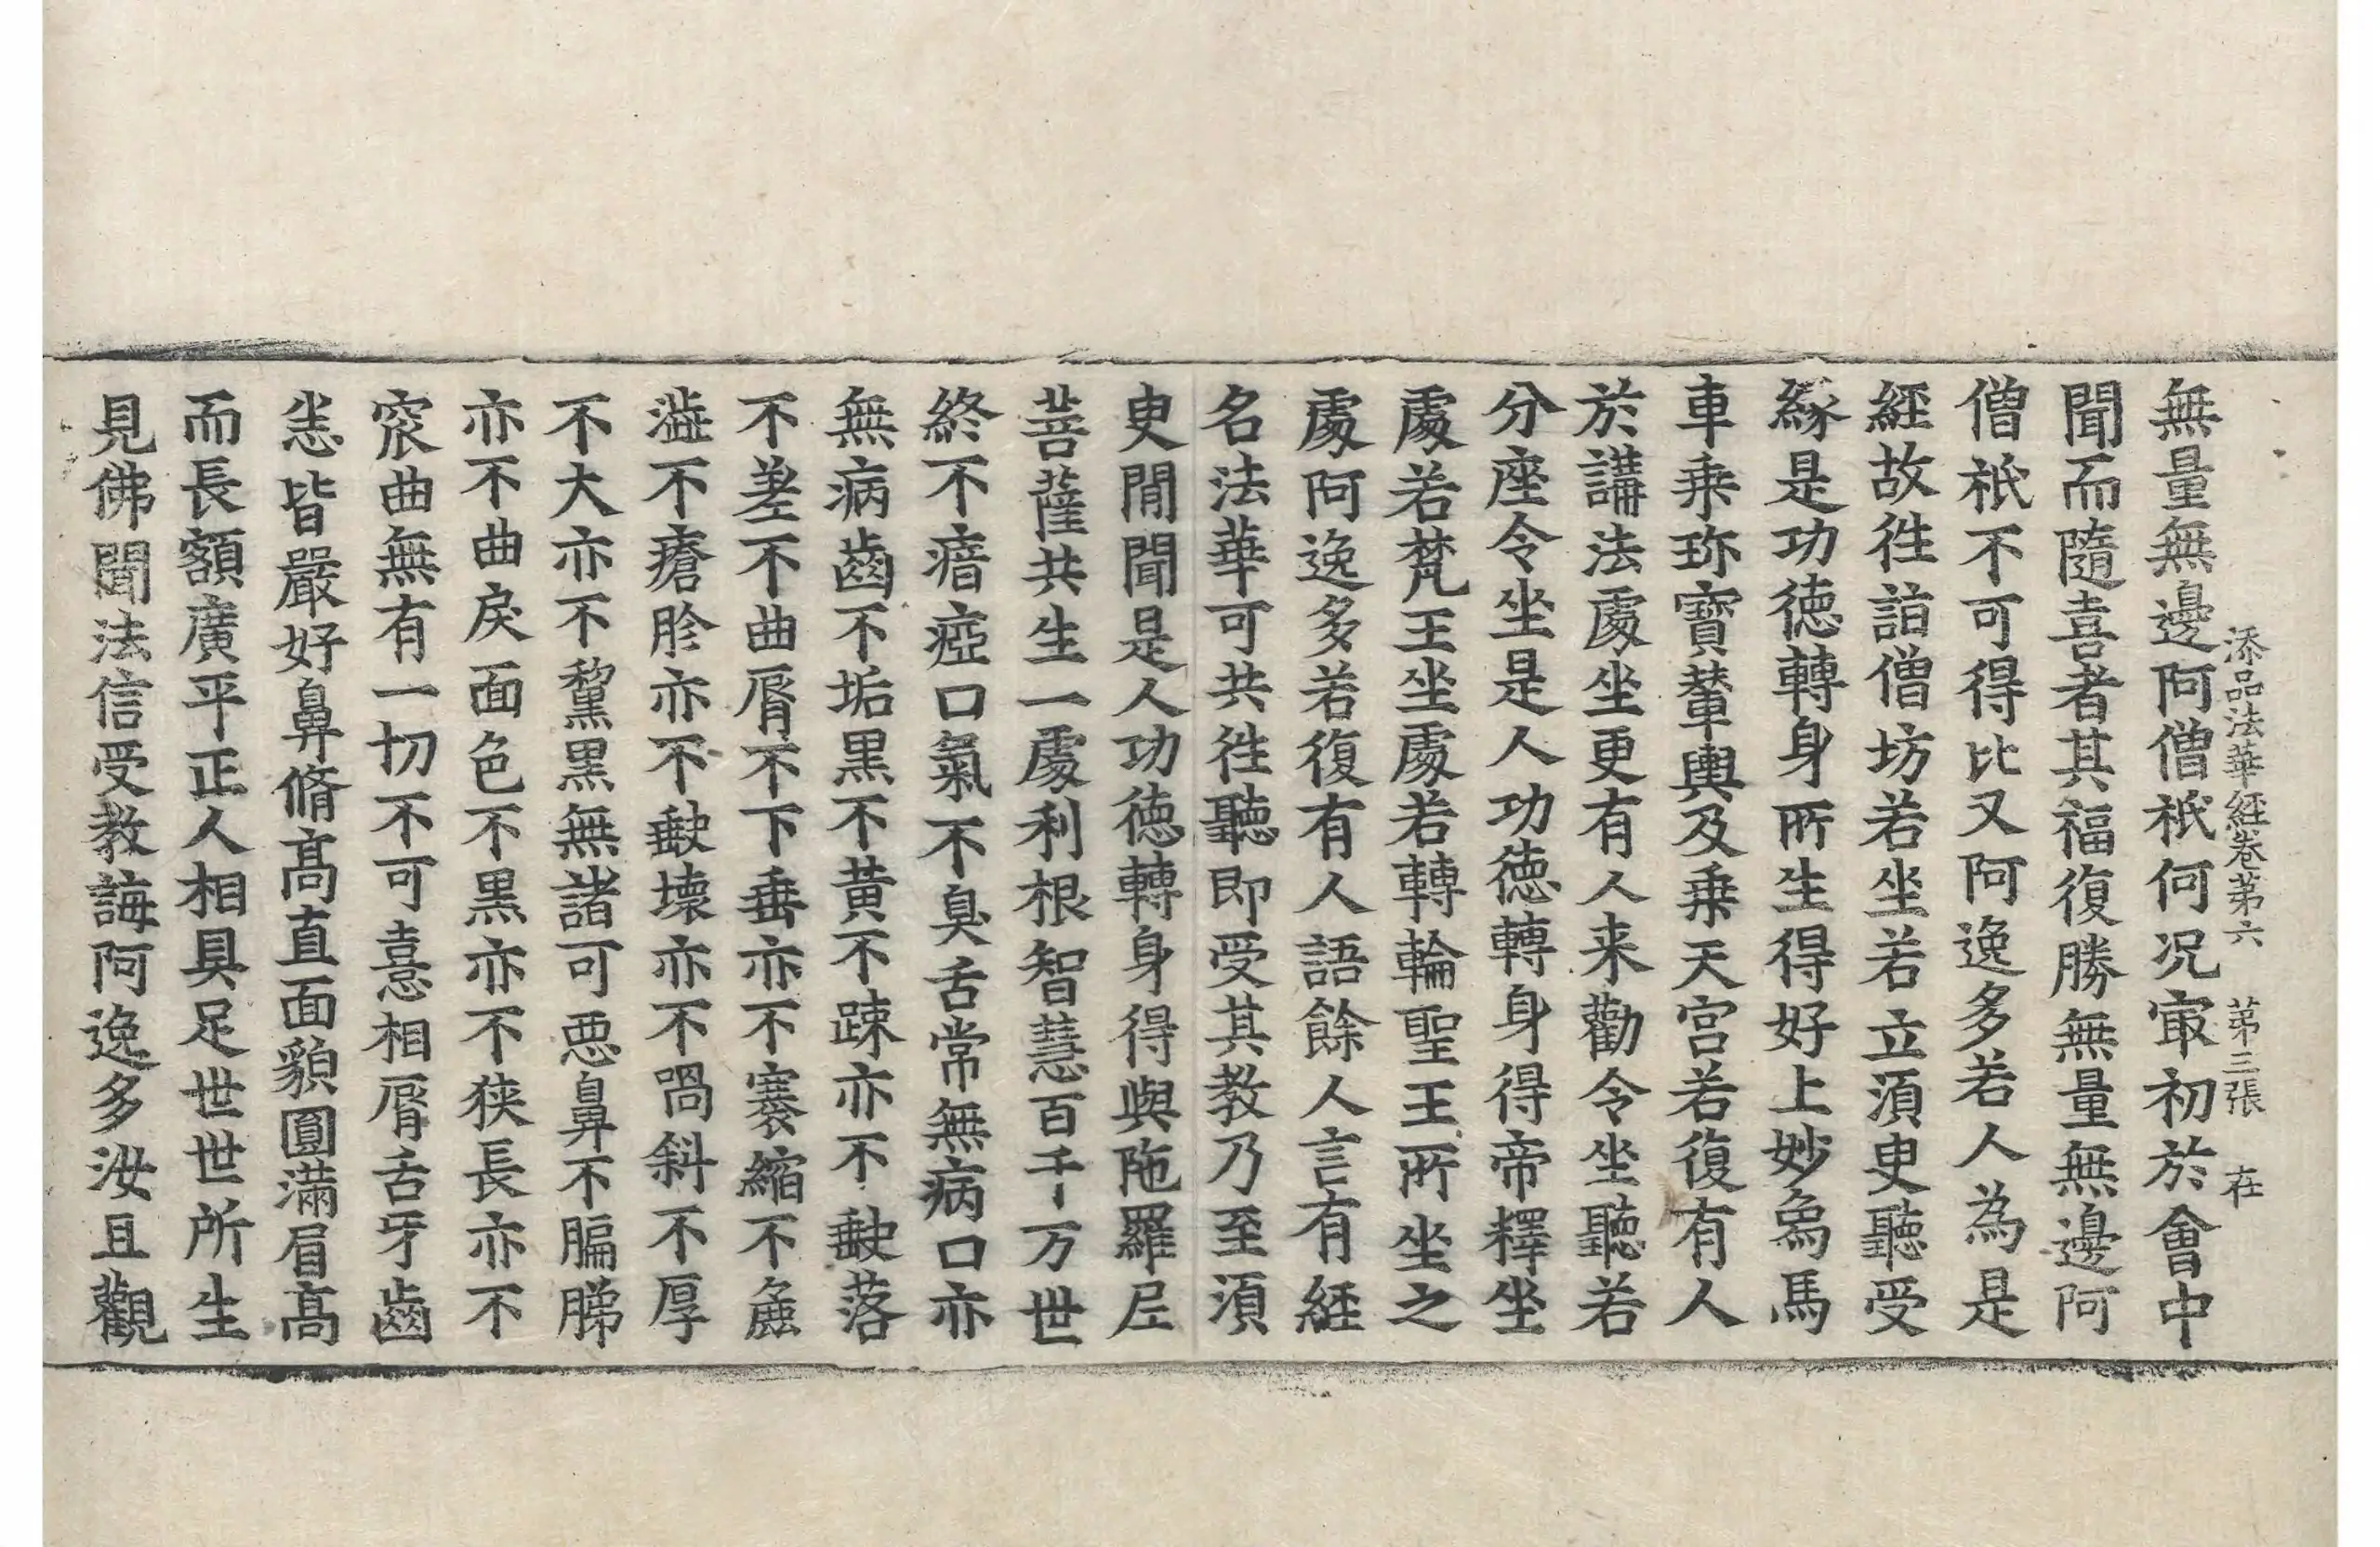 添品法華經卷苐六 苐三張 在
無量無邊阿僧祇何况㝡初於會中
聞而隨喜者其福復勝無量無邊阿
僧祇不可得比又阿逸多若人為是
經故往詣僧坊若坐若立須㬰聽受
緣是功德轉身所生得好上妙象馬
車乗珎寶輦輿及乗天宮若復有人
於講法處坐更有人来勸令坐聽若
分座令坐是人功德轉身得帝釋坐
處若梵王坐處若轉輪聖王所坐之
處阿逸多若復有人語餘人言有經
名法華可共往聽即受其教乃至須
㬰閒聞是人功德轉身得與陁羅尼
菩薩共生一處利根智慧百千万世
終不瘖瘂口氣不臭舌常無病口亦
無病齒不垢黒不黃不踈亦不𡙇落
不差不曲脣不下垂亦不褰縮不麁
澁不瘡胗亦不𡙇壞亦不喎斜不厚
不大亦不黧黒無諸可惡鼻不匾㔸
亦不曲戾面色不黒亦不狹長亦不
窊曲無有一切不可憙相脣舌牙齒
悉皆嚴好鼻脩髙直面貌圓滿眉髙
而長額廣平正人相具足世世所生
見佛聞法信受教誨阿逸多汝且觀